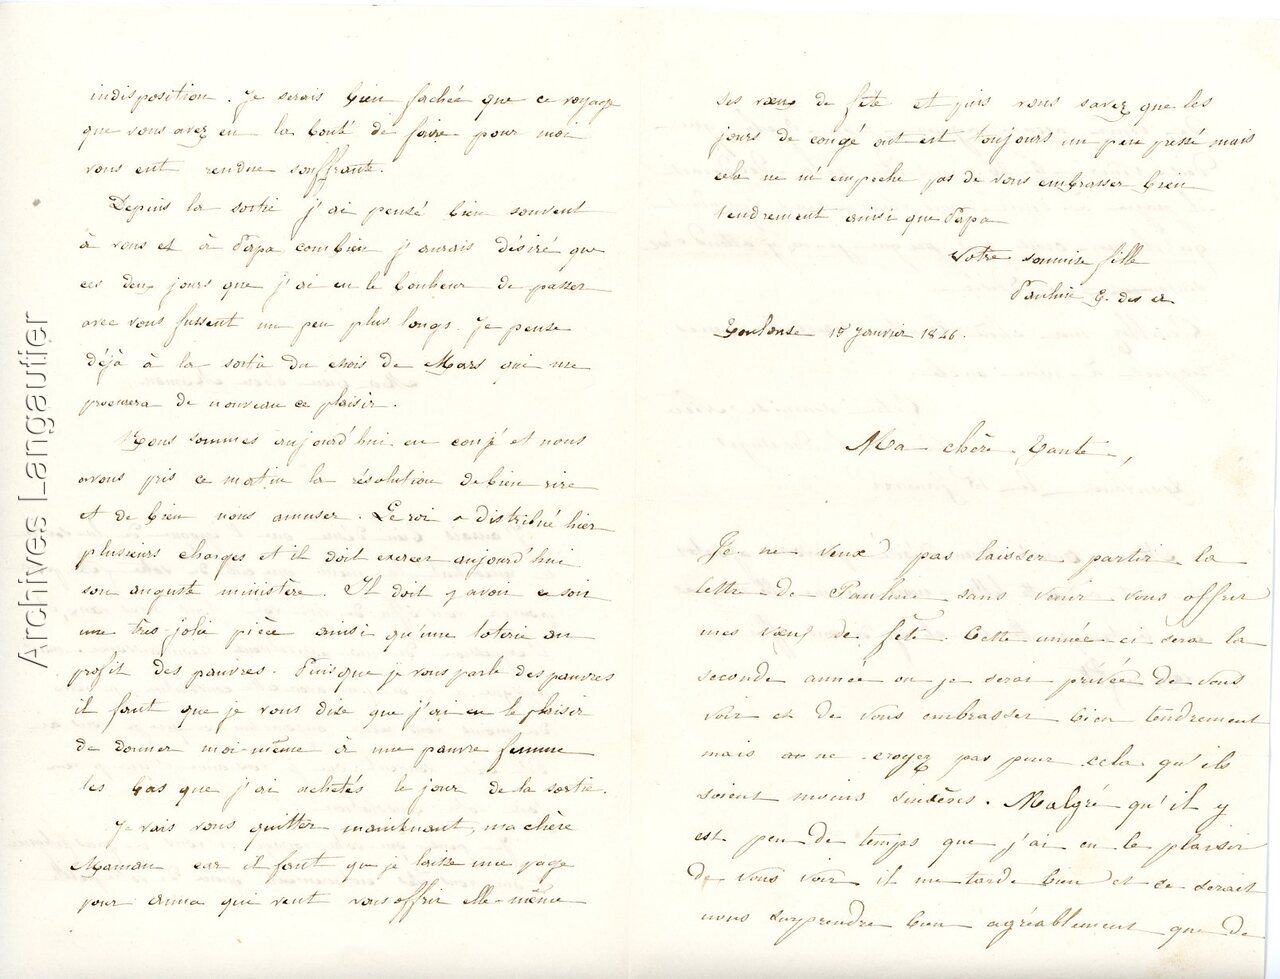 indisposition. Je serais bien fachée que ce voyage
que vous avez eu la bonté de faire pour moi
vous eut rendue souffrante.
Depuis la sortie j'ai pensé bien souvent
à vous et à Papa combien j'aurais désiré que
ces deux jours que j'ai eu le bonheur de passer
avec vous fussent un peu plus longs. Je pense
déjà à la sortie du mois de Mars qui me
procurera de nouveau ce plaisir.
Nous sommes aujourd'hui en conjé et nous
avons pris ce matin la résolution de bien rire
et de bien nous amuser. Le roi a distribué hier
plusieurs charges et il doit exercer aujourd'hui
son auguste ministère. Il doit y avoir ce soir
une très jolie pièce ainsi qu'une loterie au
profit des pauvres. Puisque je vous parle des pauvres
il faut que je vous dise que j'ai eu le plaisir
de donner moi-même à une pauvre femme
les bas que j'ai achetés le jour de la sortie.
Je vais vous quitter maintenant, ma chère
Maman car il faut que je laisse une page
pour Anna qui veut vous offrir elle-même
ses vœux de fête et puis vous savez que les
jours de congé on est toujours un peu pressé mais
cela ne m'empeche pas de vous embrasser bien
tendrement ainsi que Papa
Votre soumise fille
Pauline G. des
Toulouse 15 Janvier 1846.
Ma chère Tante,
Je ne veux pas laisser partir la
lettre de Pauline sans venir vous offrir
mes vœux de fête. Cette année-ci sera la
seconde année où je serai privée de vous
voir et de vous embrasser bien tendrement
mais ne croyez pas pour cela qu'ils
soient moins sincères. Malgré qu'il y
est peu de temps que j'ai eu le plaisir
de vous voir il me tarde bien et ce serait
nous surprendre bien agréablement que de
Archives Langautier